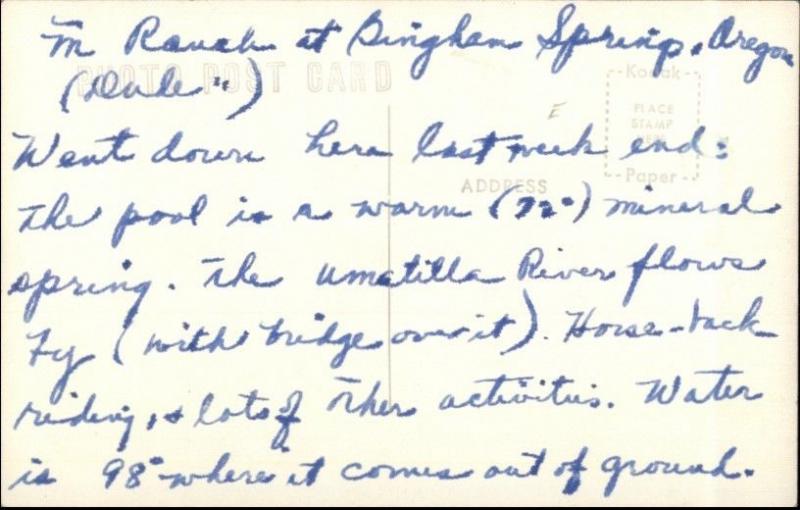 M Ranch at Bingham Springs, Oregon
(Dude")
PHOTO POST CARD
Kodak
PLACE
STAMP
HERE
Paper
ADDRESS
Went down here last week end:
the pool is a warm (72°) mineral
spring. The Umatilla River flows
by (with bridge over it). Horse-back
riding, & lots of other activities. Water
is 98° where it comes out of ground.